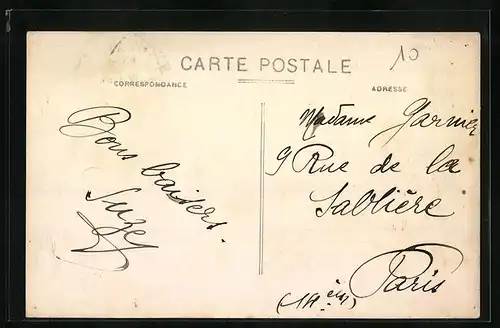 CARTE POSTALE
10
CORRESPONDANCE
ADRESSE
Bons baisers.
Madame Garnier
9 Rue de la
Sablière
Paris